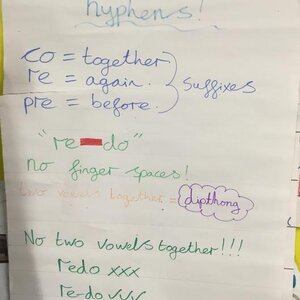 hyphens!
co = together
re = again.
pre = before.
suffixes
"re-do"
no finger spaces!
two vowels together = dipthong
No two vowels together!!!
redo xxx
re-do ✓✓✓